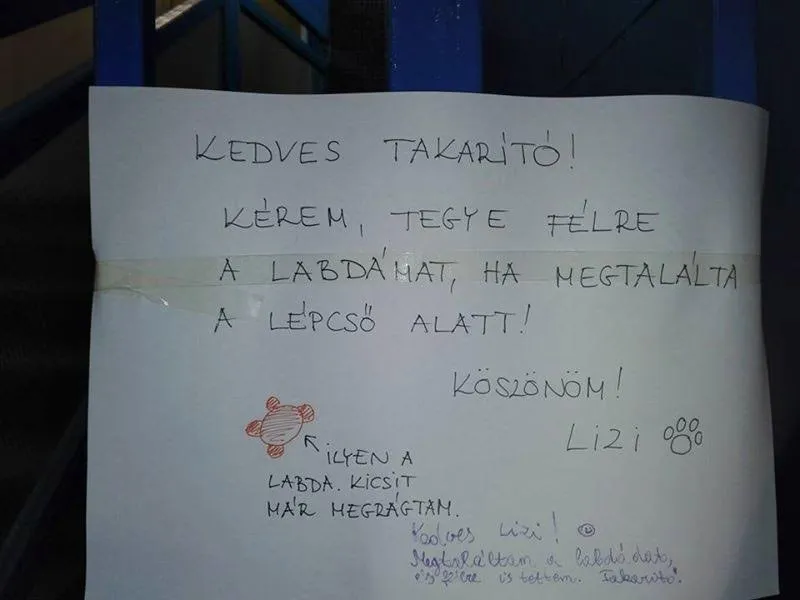 KEDVES TAKARÍTÓ!
KÉREM, TEGYE FÉLRE
A LABDÁMAT, HA MEGTALÁLTA
A LÉPCSŐ ALATT!
KÖSZÖNÖM!
LIZI
ILYEN A
LABDA. KICSIT
MÁR MEGRÁGTAM.
Kedves Lizi!
Megtaláltam a labdádat,
és félre is tettem. Takarító.